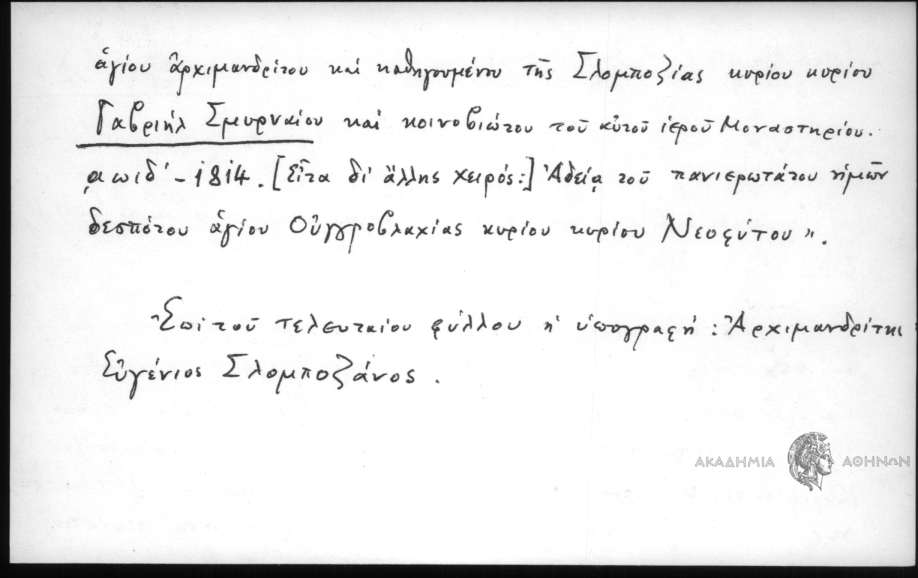 ἁγίου ἀρχιμανδρίτου καὶ καθηγουμένου τῆς Σλομποζίας κυρίου κυρίου
Γαβριὴλ Σμυρναίου καὶ κοινοβιώτου τοῦ αὐτοῦ ἱεροῦ Μοναστηρίου.
͵αωιδ΄ – 1814. [Εἶτα δι' ἄλλης χειρός:] Ἀδείᾳ τοῦ πανιερωτάτου ἡμῶν
δεσπότου ἁγίου Οὐγγροβλαχίας κυρίου κυρίου Νεοφύτου».
Ἐπὶ τοῦ τελευταίου φύλλου ἡ ὑπογραφή: Ἀρχιμανδρίτης
Εὐγένιος Σλομποζάνος.
ΑΚΑΔΗΜΙΑ ΑΘΗΝΩΝ